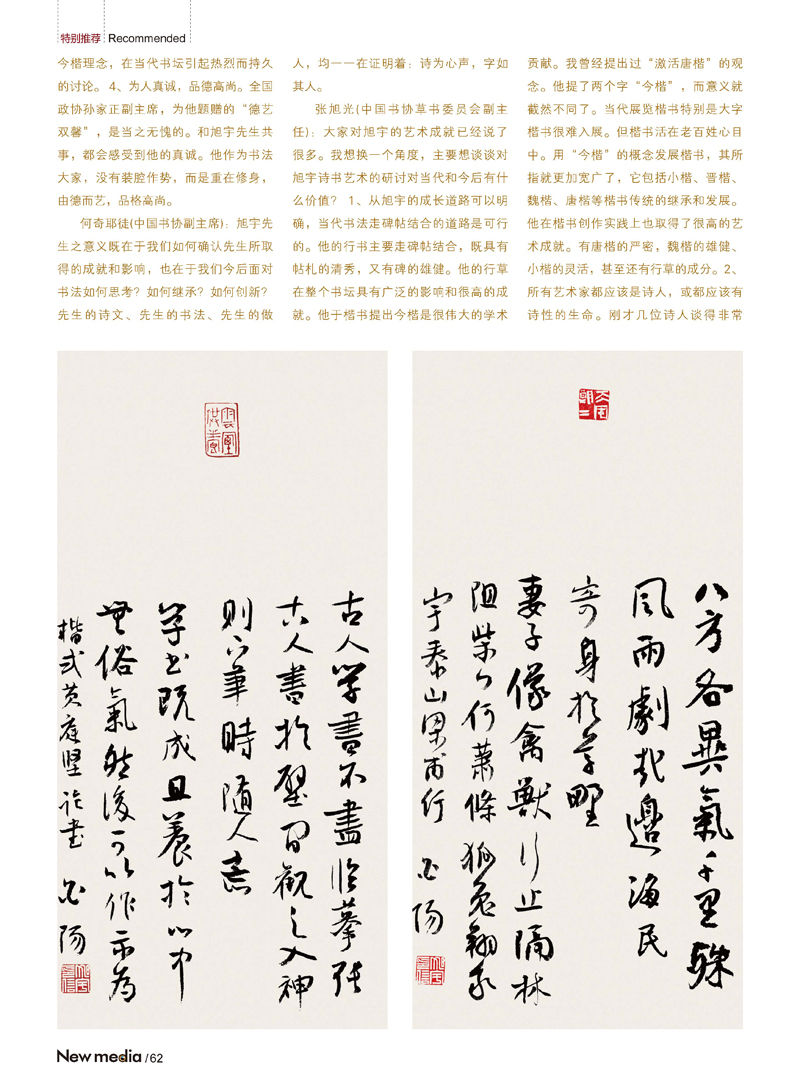 特别推荐 Recommended
今楷理念，在当代书坛引起热烈而持久
的讨论。4、为人真诚，品德高尚。全国
政协孙家正副主席，为他题赠的“德艺
双馨”，是当之无愧的。和旭宇先生共
事，都会感受到他的真诚。他作为书法
大家，没有装腔作势，而是重在修身，
由德而艺，品格高尚。
何奇耶徒(中国书协副主席)：旭宇先
生之意义既在于我们如何确认先生所取
得的成就和影响，也在于我们今后面对
书法如何思考？如何继承？如何创新？
先生的诗文、先生的书法、先生的做
人，均一一在证明着：诗为心声，字如
其人。
张旭光(中国书协草书委员会副主
任)：大家对旭宇的艺术成就已经说了
很多。我想换一个角度，主要想谈谈对
旭宇诗书艺术的研讨对当代和今后有什
么价值？ 1、从旭宇的成长道路可以明
确，当代书法走碑帖结合的道路是可行
的。他的行书主要走碑帖结合，既具有
帖札的清秀，又有碑的雄健。他的行草
在整个书坛具有广泛的影响和很高的成
就。他于楷书提出今楷是很伟大的学术
贡献。我曾经提出过“激活唐楷”的观
念。他提了两个字“今楷”，而意义就
截然不同了。当代展览楷书特别是大字
楷书很难入展。但楷书活在老百姓心目
中。用“今楷”的概念发展楷书，其所
指就更加宽广了，它包括小楷、晋楷、
魏楷、唐楷等楷书传统的继承和发展。
他在楷书创作实践上也取得了很高的艺
术成就。有唐楷的严密，魏楷的雄健、
小楷的灵活，甚至还有行草的成分。2、
所有艺术家都应该是诗人，或都应该有
诗性的生命。刚才几位诗人谈得非常
古人學書不盡臨摹張
古人書於壁間觀之入神
則下筆時隨人意
學書既成且養於心中
無俗氣然後可以作示為
楷式黄庭堅論書
八方各異氣千里殊
風雨劇哉邊海民
寄身於草野
妻子像禽獸行止隔林
阻柴門何蕭條狐兔翔我
宇泰山梁甫行
New media /62